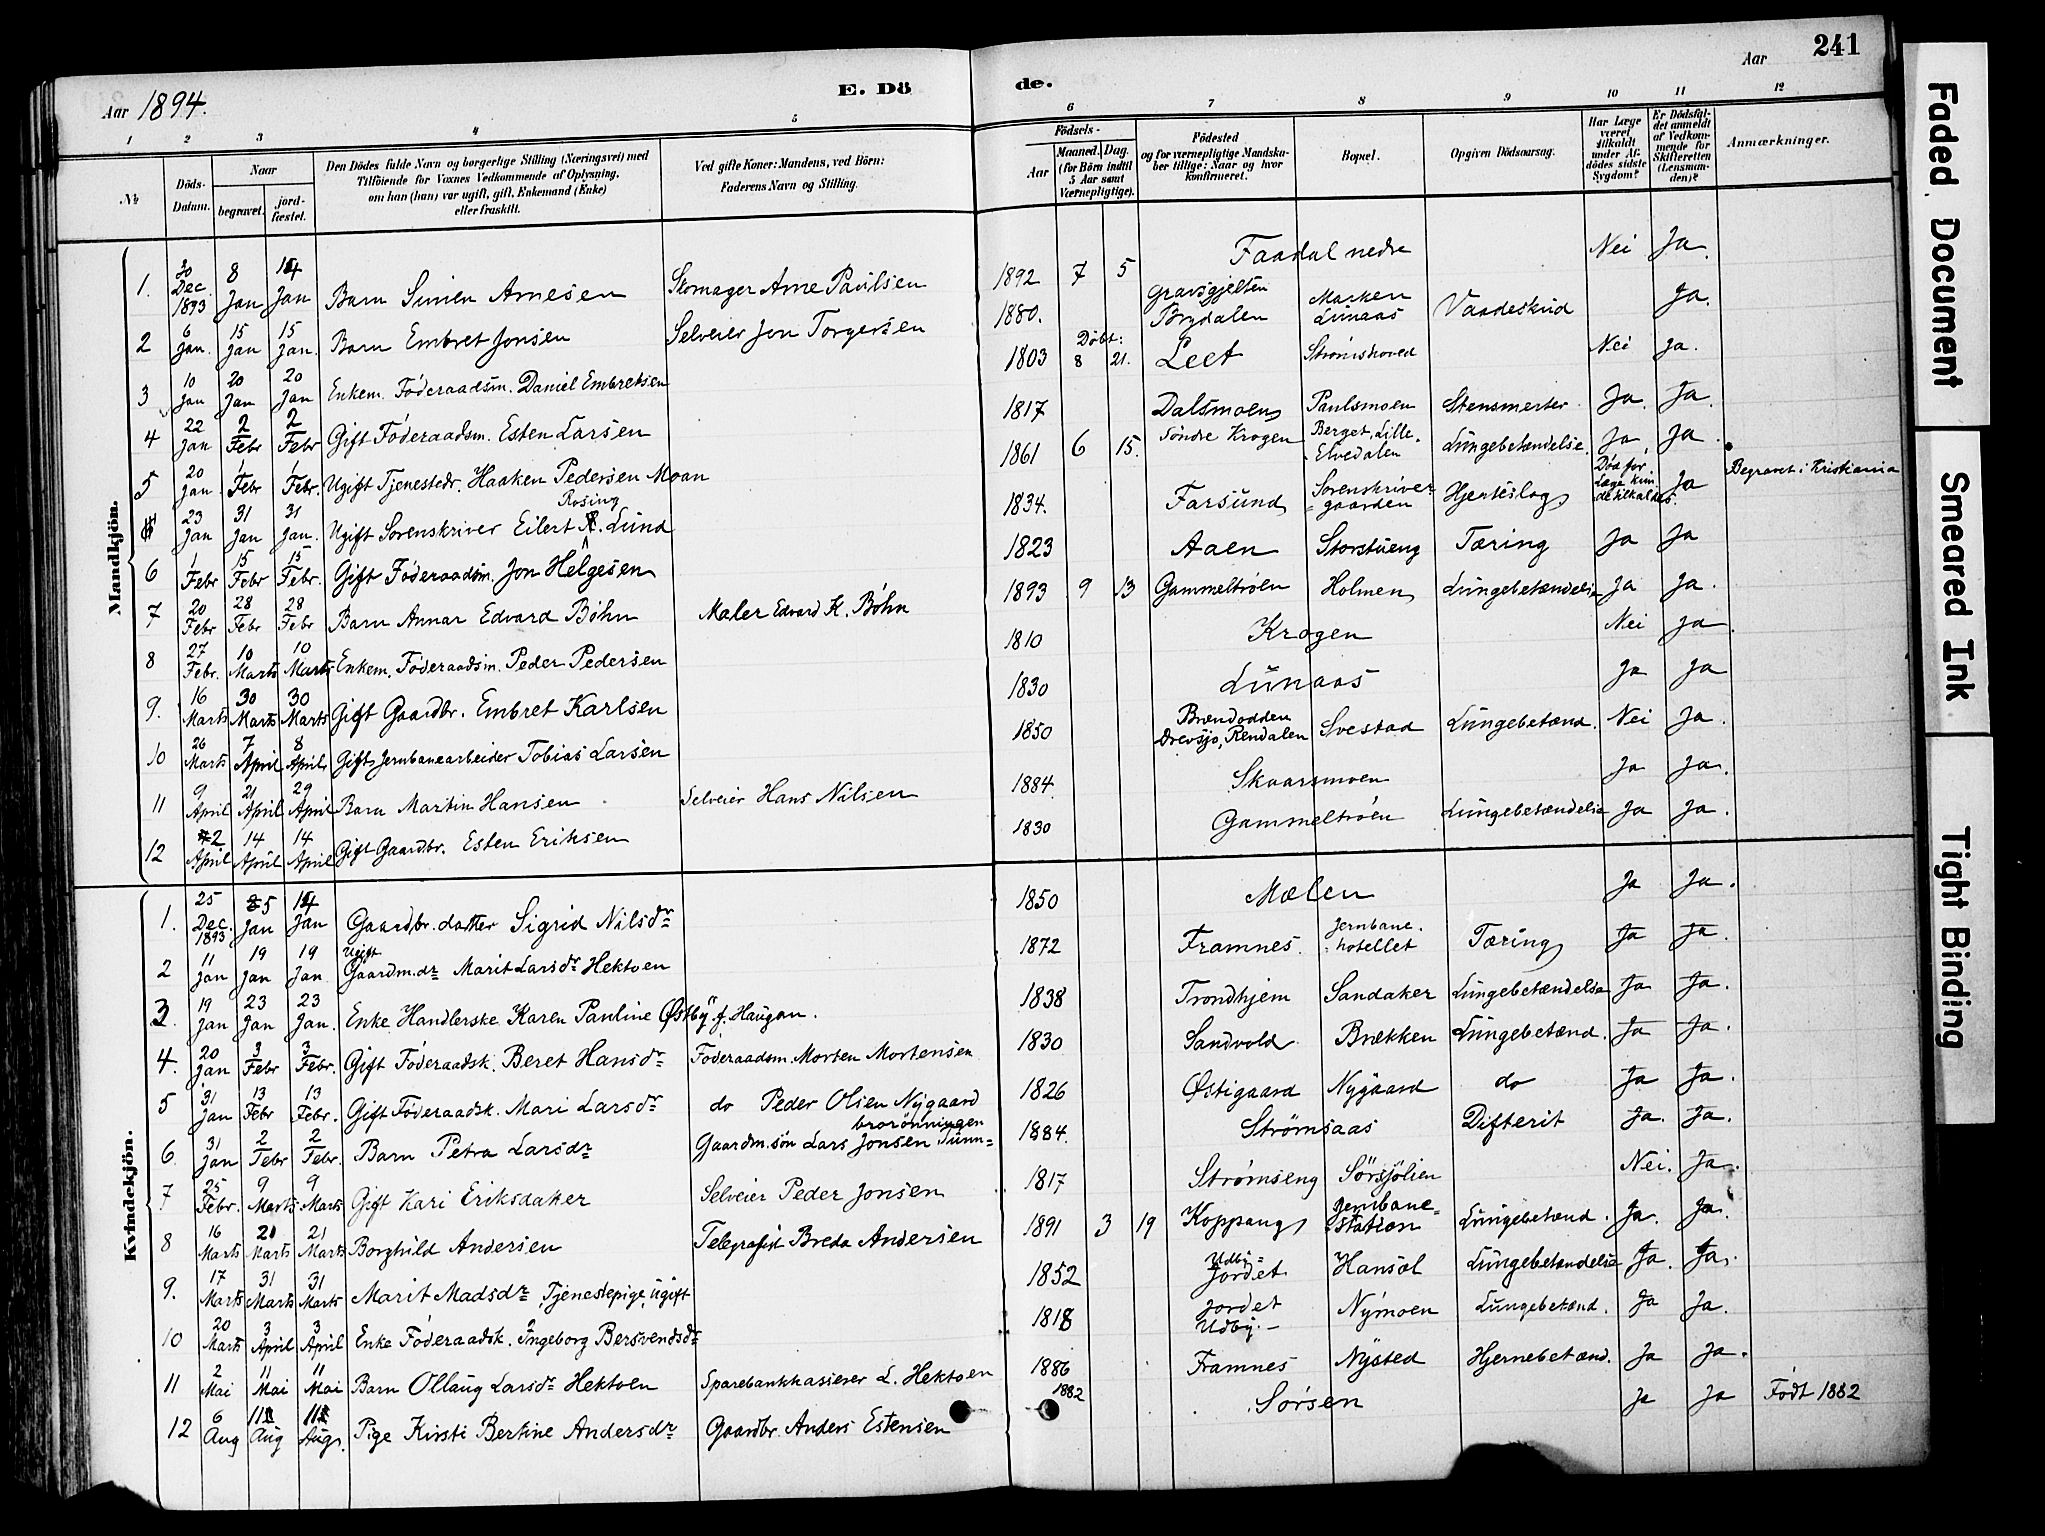 Aar 1894. E. Dö de. Aar 241
1 2 3 4 5 6 7 8 9 10 11 12
№
Döds-Datum.
Naar
begravet.
jord-fæstet.
Den Dödes fulde Navn og borgerlige Stilling (Næringsvei) med
Tilföiende for Voxnes Vedkommende af Oplysning,
om han (hun) var ugift, gift, Enkemand (Enke)
eller fraskilt.
Ved gifte Koner: Mandens, ved Börn:
Faderens Navn og Stilling.
Födsels-
Aar
Maaned. Dag.
(for Börn indtil
5 Aar samt
Værnepligtige).
Födested
og for værnepligtige Mandska-
ber tillige: Naar og hvor
konfirmeret.
Bopæl.
Opgiven Dödsaarsag.
Har Læge
været
tilkaldt
under Af-
dödes sidste
Sygdom?
Er Dödsfal-
det anmeldt
af Vedkom-
mende for
Skifteretten
(Lensman-
den)?
Anmærkninger.
Mandkjön.
1. 30 Dec. 1893 8 Jan 14 Jan Barn Simen Arnesen Skomager Arne Paulsen 1892 7 5 Faadal nedre Nei Ja.
2 6 Jan. 15 Jan 15 Jan. Barn Embret Jonsen Selveier Jon Torgersen 1880. Gravsgjelten Brydalen Lunaas Vaadeskud Ja.
3 10 Jan 20 Jan 20 Jan Enkem. Føderaadsm. Daniel Embretsen 1803 Døbt: 8 21. Leet Strømshoved Nei Ja.
4 22 Jan 2 Febr 2 Febr Gift Føderaadsm. Esten Larsen 1817 Dalsmoen Paulsmoen Stensmerter Ja. Ja.
5 20 Jan 1 Febr 1 Febr. Ugift Tjenestedr. Haaken Pedersen Moan 1861 6 15. Søndre Krogen Berget, Lille-Elvedalen Lungebetændelse. Ja Ja.
23 Jan 31 Jan 31 Jan. Ugift Sorenskriver Eilert Rosing Lund 1834. Farsund Sorenskriver-gaarden Hjerteslag Død før Læge kunde tilkaldes. Ja Begravet i Kristiania
6 1 Febr 15 Febr 15 Febr. Gift Føderaadsm. Jon Helgesen 1823 Aaen Storstueng Tæring Ja Ja
7 20 Febr 28 Febr 28 Febr Barn Annar Edvard Bøhn Maler Edvard K. Bøhn 1893 9 13 Gammeltrøen Holmen Lungebetændelse Ja Ja.
8 27 Febr. 10 Marts 10 Marts Enkem. Føderaadsm. Peder Pedersen 1810 Krogen Nei Ja.
9. 16 Marts 30 Marts 30 Marts Gift Gaardbr. Embret Karlsen 1830 Lunaas Ja Ja
10 26 Marts 7 April 8 April Gift Jernbanearbeider Tobias Larsen 1850 Brændodden Drevsjø, Rendalen Svestad Lungebetænd. Nei Ja.
11 9 April 21 April 29 April Barn Martin Hansen Selveier Hans Nilsen 1884. Skaarsmoen Ja Ja.
12 2 April 14 April 14 April Gift Gaardbr. Esten Eriksen 1830 Gammeltrøen Lungebetændelse Ja Ja.
Kvindekjön.
1. 25 Dec. 1893 5 Jan 14 Jan Gaardbr. datter Sigrid Nilsdr 1850 Mælen Ja Ja.
2 11 Jan 19 Jan 19 Jan Ugift Gaardm.dr Marit Larsdr Hektoen 1872 Framnes. Jernbane-hotellet Tæring Ja Ja.
3. 19 Jan 23 Jan 23 Jan. Enke Handlerske Karen Pauline Østby f. Haugan. 1838 Trondhjem Sandaker Lungebetændelse Ja Ja.
4. 20 Jan 3 Febr 3 Febr. Gift Føderaadsk. Beret Hansdr Føderaadsm. Morten Mortensen 1830 Sandvold Brækken Lungebetænd. Ja Ja.
5 31 Jan 13 Febr 13 Febr. Gift Føderaadsk. Mari Larsdr do Peder Olsen Nygaard 1826 Østigaard Nygaard do Ja Ja.
6 31 Jan 2 Febr 2 Febr. Barn Petra Larsdr Gaardm.søn Lars Jonsen Tunn-brorønningen 1884. Strømsaas Difterit Ja. Ja.
7 25 Febr. 9 Marts 9 Marts Gift Kari Eriksdatter Selveier Peder Jonsen 1817 Strømseng Sørsjølien Nei. Ja.
8 16 Marts 21 Marts 21 Marts Borghild Andersen Telegrafist Breda Andersen 1891 3 19 Koppang Jernbane-station Lungebetænd. Ja. Ja.
9. 17 Marts 31 Marts 31 Marts Marit Madsdr Tjenestepige, ugift 1852 Udby-Jordet Hansøl Lungebetændelse Ja. Ja.
10 20 Marts 3 April 3 April Enke Føderaadsk. Ingeborg Bersvendsdr 1818 Jordet Udby.- Nymoen Lungebetænd. Ja Ja.
11 2 Mai 11 Mai 11 Mai Barn Ollaug Larsdr Hektoen Sparebankkasserer L. Hektoen 1886 Framnes Nysted Hjernebetænd. Ja Ja.
12 6 Aug 11 Aug 11 Aug. Pige Kirsti Bertine Andersdr Gaardbr. Anders Estensen 1882 Sørsen Ja Ja Født 1882
Faded Document
Smeared Ink
Tight Binding